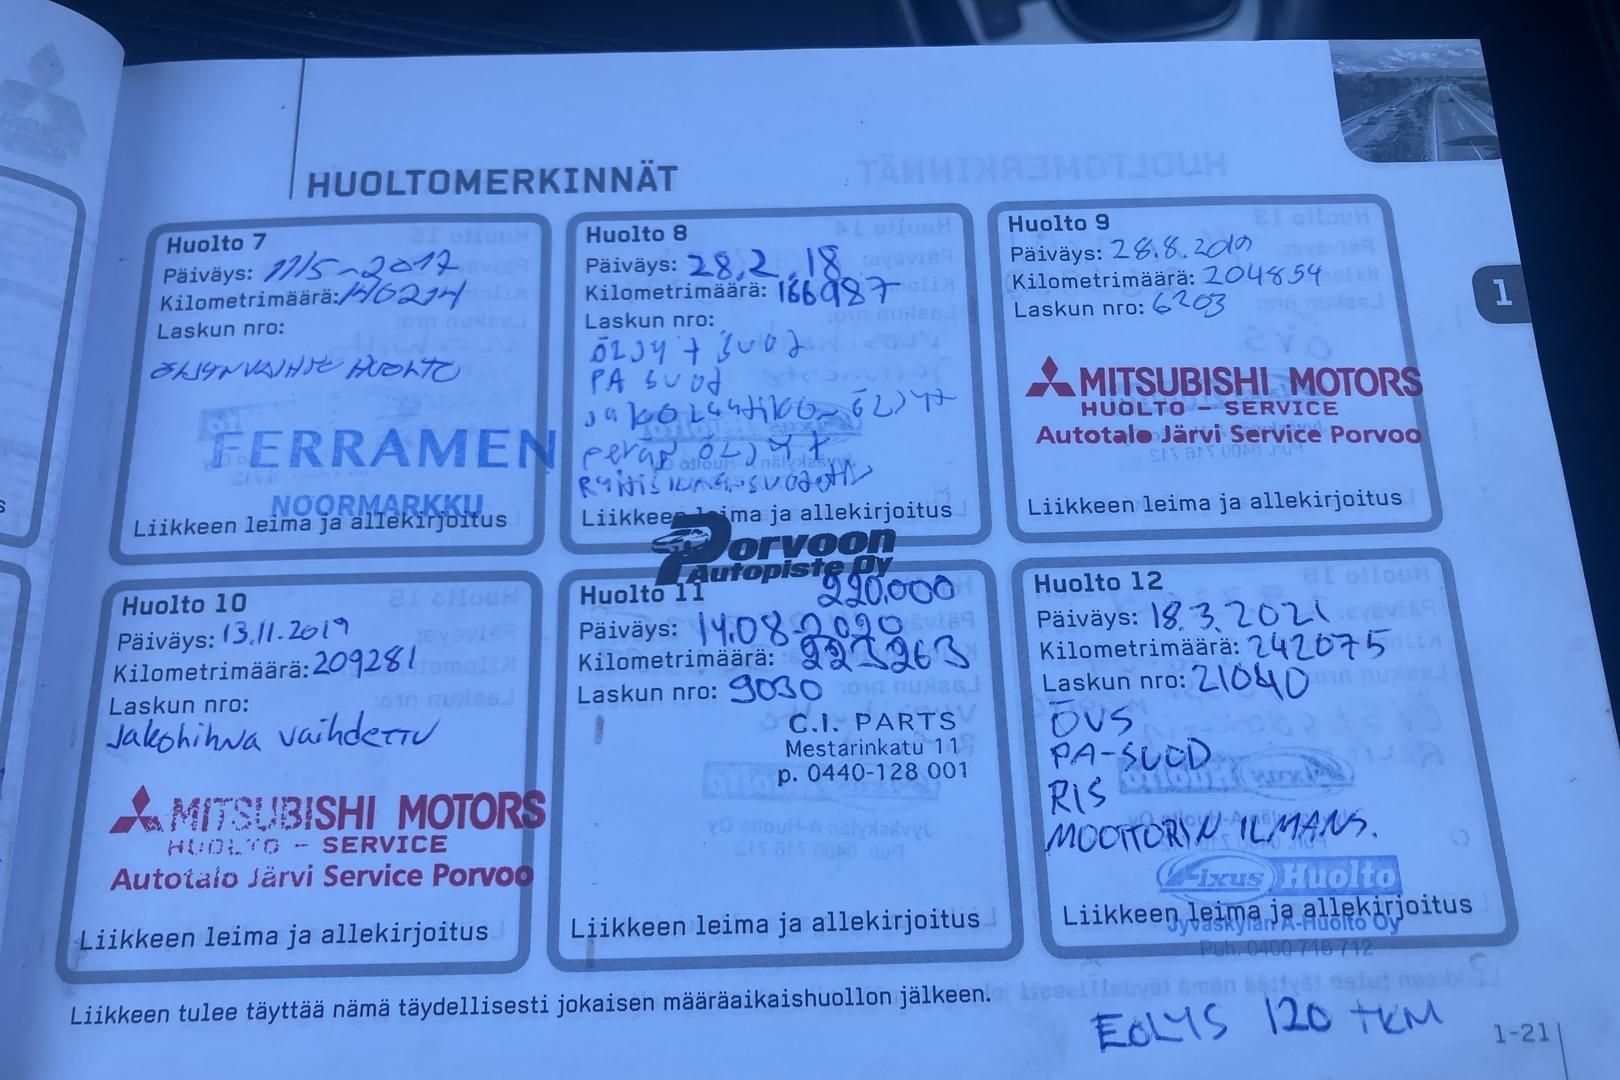 HUOLTOMERKINNÄT
Huolto 7
Päiväys: 11/5-2017
Kilometrimäärä: 140214
Laskun nro:
ÖLJYNVAIHTO HUOLTO
FERRAMEN
NOORMARKKU
Liikkeen leima ja allekirjoitus
Huolto 8
Päiväys: 28.2.18
Kilometrimäärä: 166987
Laskun nro:
ÖLJY + SUOD
PA SUOD
jakolaatikon öljyt
perän öljyt
Raitisilmasuodatin
Liikkeen leima ja allekirjoitus
Porvoon
Autopiste Oy
Huolto 9
Päiväys: 28.8.2019
Kilometrimäärä: 204854
Laskun nro: 6203
MITSUBISHI MOTORS
HUOLTO - SERVICE
Autotalo Järvi Service Porvoo
Liikkeen leima ja allekirjoitus
1
Huolto 10
Päiväys: 13.11.2019
Kilometrimäärä: 209281
Laskun nro:
Jakohihna vaihdettu
MITSUBISHI MOTORS
HUOLTO - SERVICE
Autotalo Järvi Service Porvoo
Liikkeen leima ja allekirjoitus
Huolto 11
220.000
Päiväys: 14.08.2020
Kilometrimäärä: 223263
Laskun nro: 9030
C.I. PARTS
Mestarinkatu 11
p. 0440-128 001
Liikkeen leima ja allekirjoitus
Huolto 12
Päiväys: 18.3.2021
Kilometrimäärä: 242075
Laskun nro: 21040
ÖVS
PA-SUOD
RIS
MOOTTORIN ILMANS.
Fixus Huolto
Liikkeen leima ja allekirjoitus
Jyväskylän A-Huolto Oy
Puh. 0400 716 712
Liikkeen tulee täyttää nämä täydellisesti jokaisen määräaikaishuollon jälkeen.
EOLYS 120 TKM
1-21